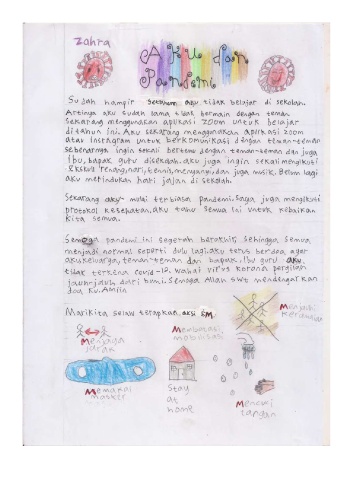 Zahra
Aku dan
Pandemi
Sudah hampir setahun aku tidak belajar di sekolah.
Artinya aku sudah lama tidak bermain dengan teman
sekarang menggunakan aplikasi zoom untuk belajar
ditahun ini. Aku sekarang menggunakan aplikasi zoom
atau Instagram untuk berkomunikasi dengan teman-teman
sebenarnya ingin sekali bertemu dengan teman-teman dan juga
Ibu, bapak guru disekolah. aku juga ingin sekali mengikuti
Ekskul renang, nari, tennis, menyanyi, dan juga musik. Belum lagi
aku merindukan hari jalan di sekolah.
Sekarang aku mulai terbiasa pandemi. Saya juga mengikuti
protokol kesehatan, aku tahu semua ini untuk kebaikan
kita semua.
Semoga pandemi ini segerah berakhir, sehingga semua
menjadi normal seperti dulu lagi. aku terus berdoa agar
aku keluarga, teman-teman dan bapak, ibu guru aku
tidak terkena covid-19. Wahai virus korona pergilah
jauh-jauh dari bumi. Semoga Allah SWT mendengarkan
doa ku. Amiin
Mari kita selalu terapkan aksi 5M
Menjauhi
kerumunan
Menjaga
jarak
Membatasi
mobilitas
Memakai
masker
Stay
at
home
Mencuci
tangan